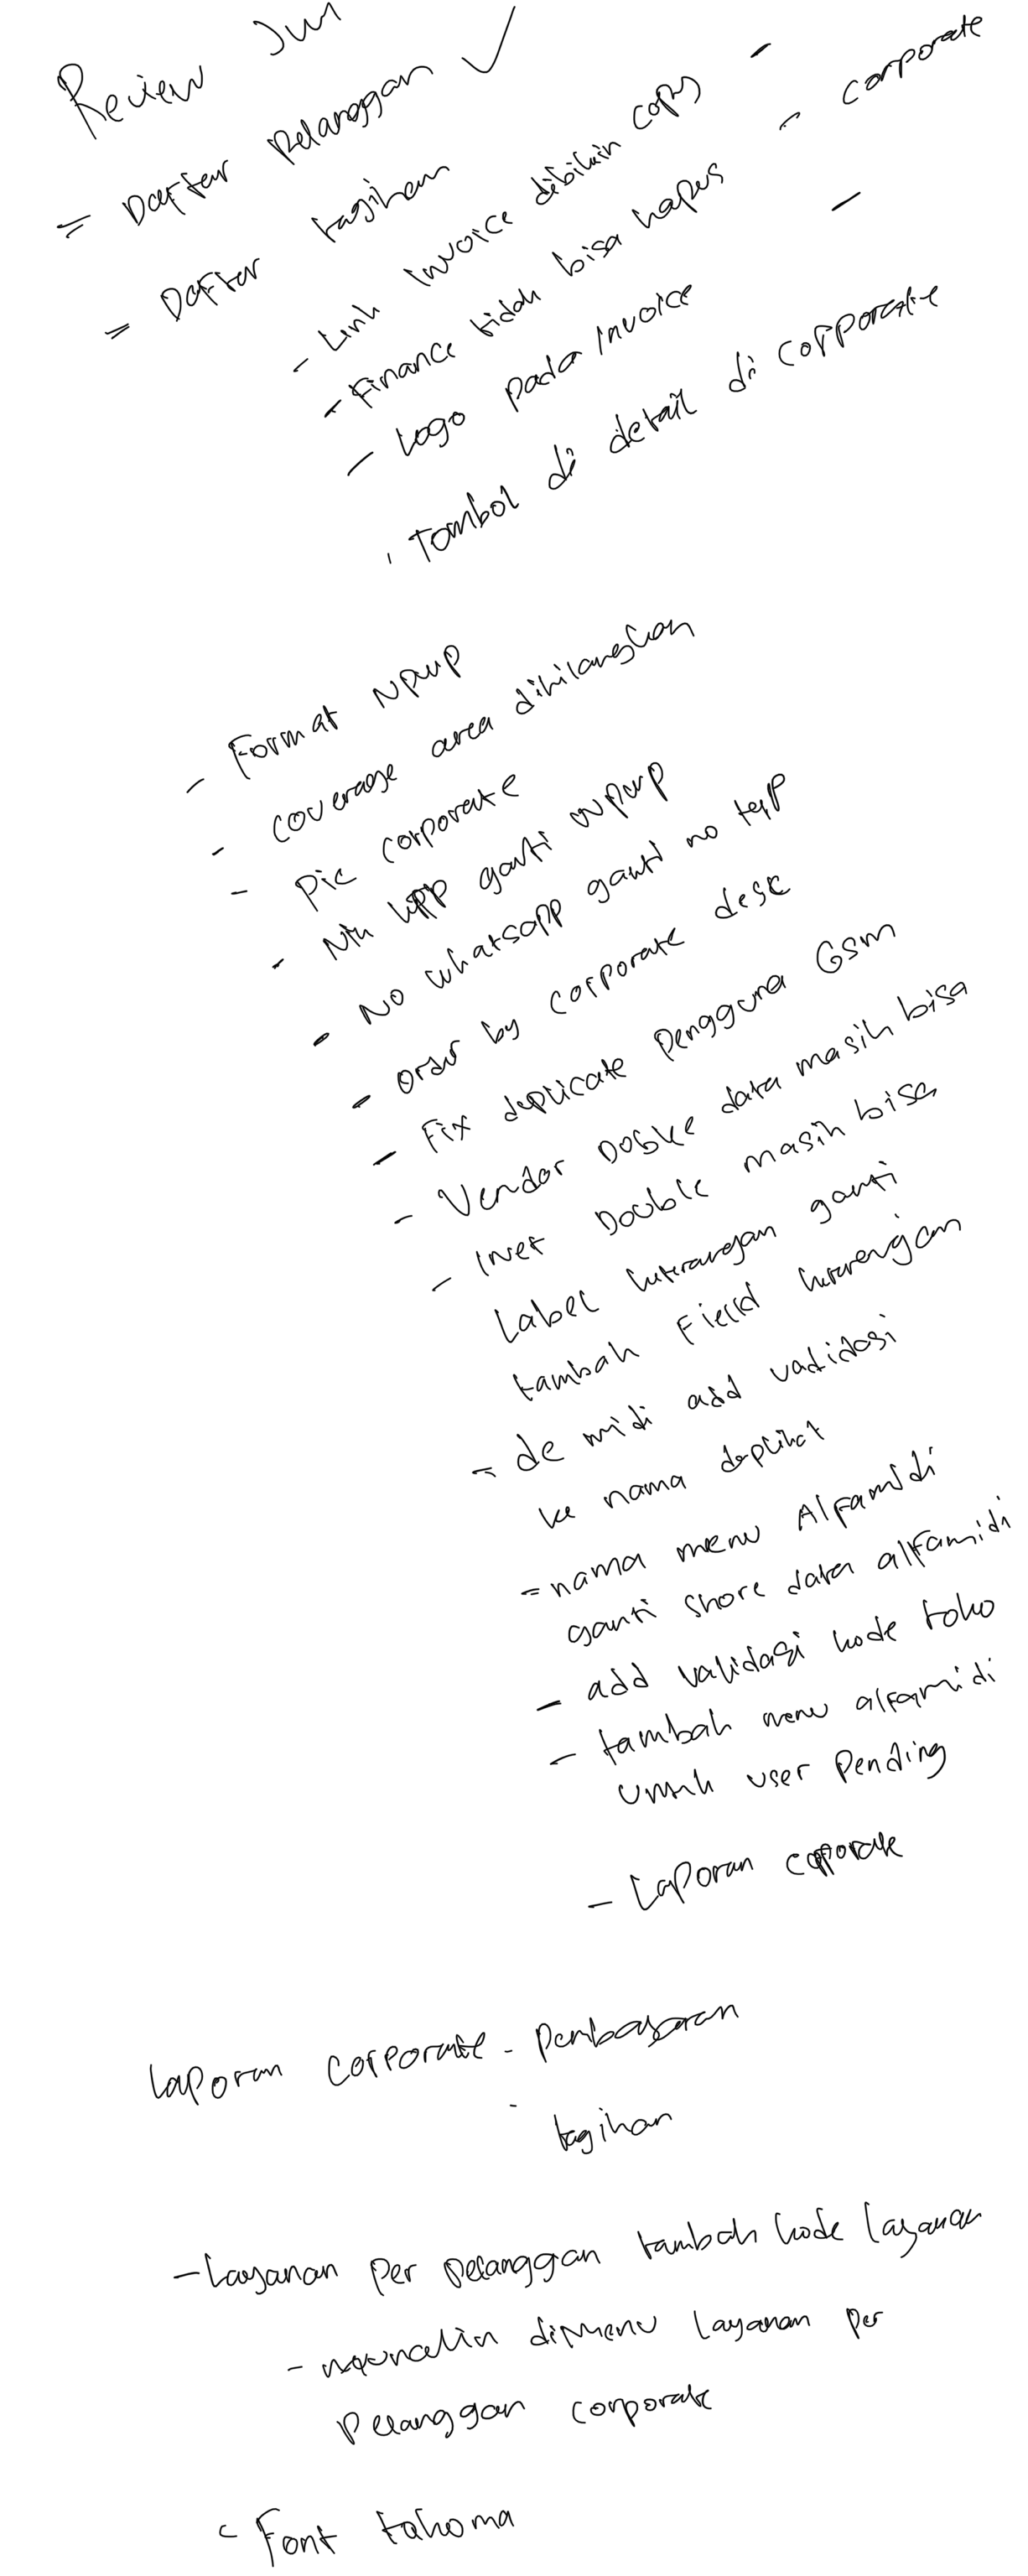 Review Jun
= Daftar Pelanggan ✓
= Daftar tagihan
- Link Invoice dibikin copy -
- Finance tidak bisa hapus - corporate
- Logo pada invoice -
. Tombol di detail di corporate
- Format NPWP
- coverage area dihilangkan
- Pic corporate
- Nik ganti NPWP
- No whatsapp ganti no telp
- order by corporate desc
- Fix duplicate Pengguna Gsm
- Vendor Double data masih bisa
- Inet Double masih bisa
Label keterangan ganti
tambah Field keterangan
- de midi add validasi
ke nama duplikat
= nama menu Alfamidi
ganti store data alfamidi
- add validasi kode toko
- tambah menu alfamidi
untuk user Pending
- Laporan corporate
Laporan corporate - Pembayaran
- tagihan
- Layanan Per Pelanggan tambah kode layanan
- dimenu Layanan Per
Pelanggan corporate
- Font tahoma